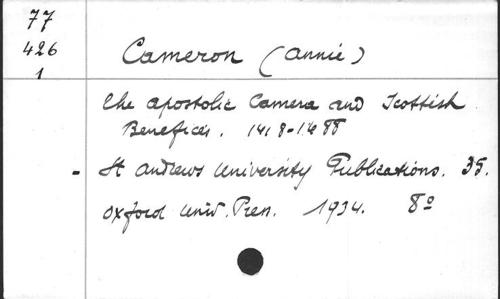 77
426
1
Cameron (Annie)
The Apostolic Camera and Scottish
Benefices. 1418-1488
- St Andrews University Publications. 35.
Oxford Univ. Press. 1934. 8º